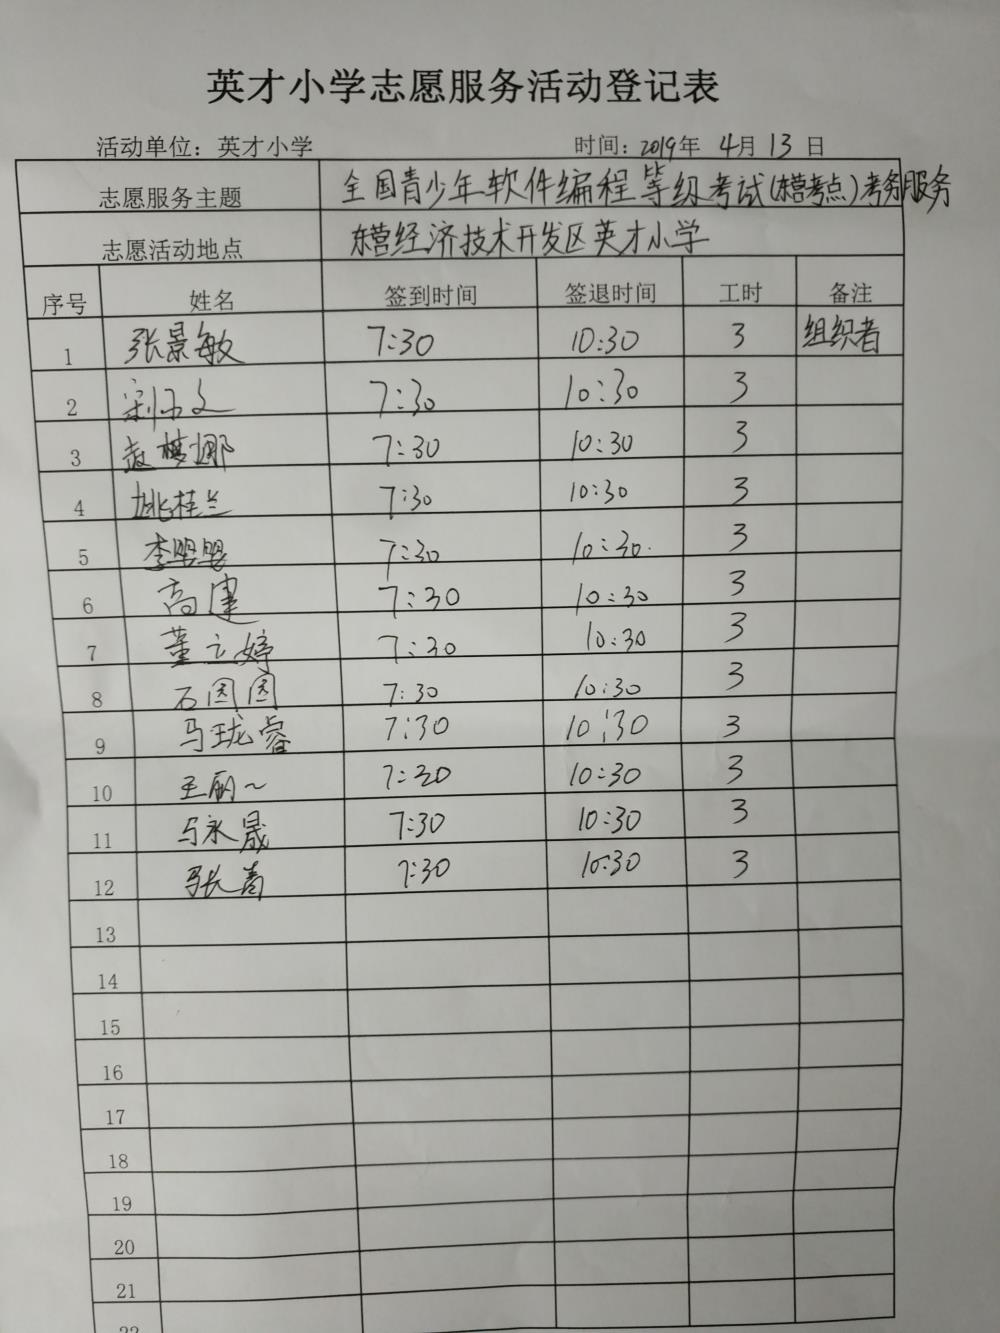 英才小学志愿服务活动登记表
活动单位：英才小学 时间：2019年 4月 13日
志愿服务主题 全国青少年软件编程等级考试(东营考点)考务服务
志愿活动地点 东营经济技术开发区英才小学
序号 姓名 签到时间 签退时间 工时 备注
1 张景敏 7:30 10:30 3 组织者
2 7:30 10:30 3
3 赵梦娜 7:30 10:30 3
4 姚桂兰 7:30 10:30 3
5 李盟盟 7:30 10:30. 3
6 高建 7:30 10:30 3
7 董立婷 7:30 10:30 3
8 石图图 7:30 10:30 3
9 马珑睿 7:30 10:30 3
10 王丽~ 7:30 10:30 3
11 马永晟 7:30 10:30 3
12 张青 7:30 10:30 3
13
14
15
16
17
18
19
20
21
22